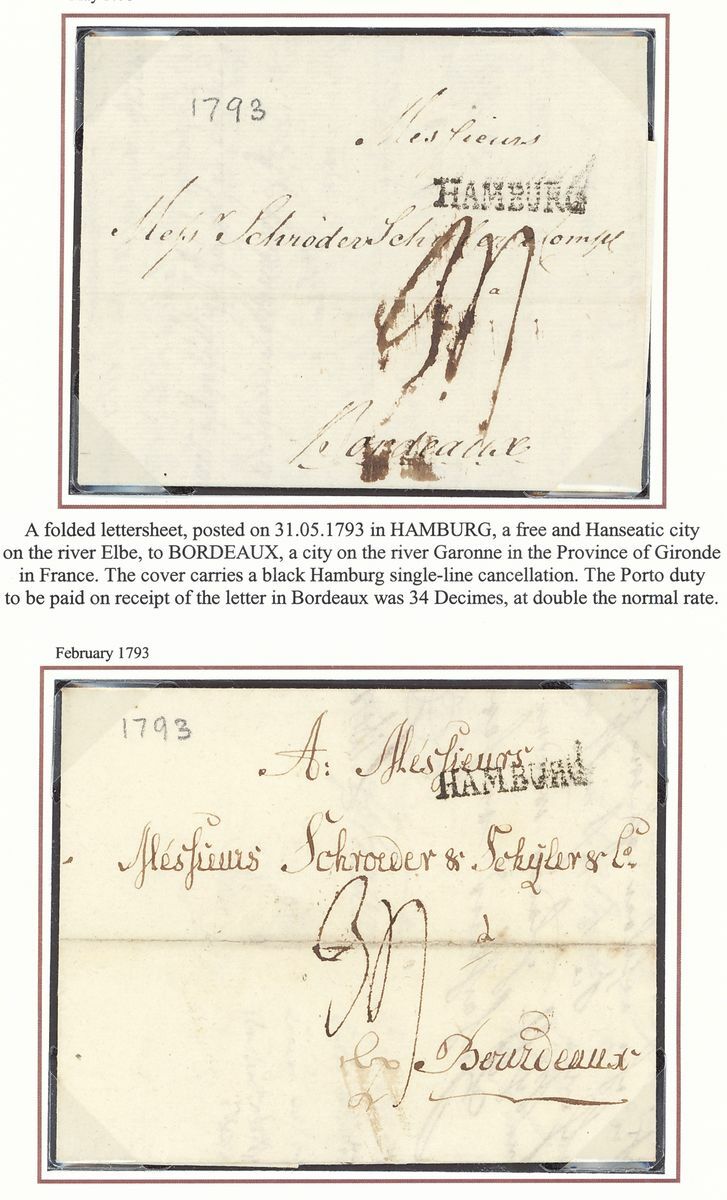 1793
Messieurs
HAMBURG
Messrs Schröder Schÿler & Comp
a
Bordeaux
A folded lettersheet, posted on 31.05.1793 in HAMBURG, a free and Hanseatic city
on the river Elbe, to BORDEAUX, a city on the river Garonne in the Province of Gironde
in France. The cover carries a black Hamburg single-line cancellation. The Porto duty
to be paid on receipt of the letter in Bordeaux was 34 Decimes, at double the normal rate.
February 1793
1793
A: Méssieurs
HAMBURG
Méssieurs Schroeder & Schÿler & Co.
34
à
Bourdeaux